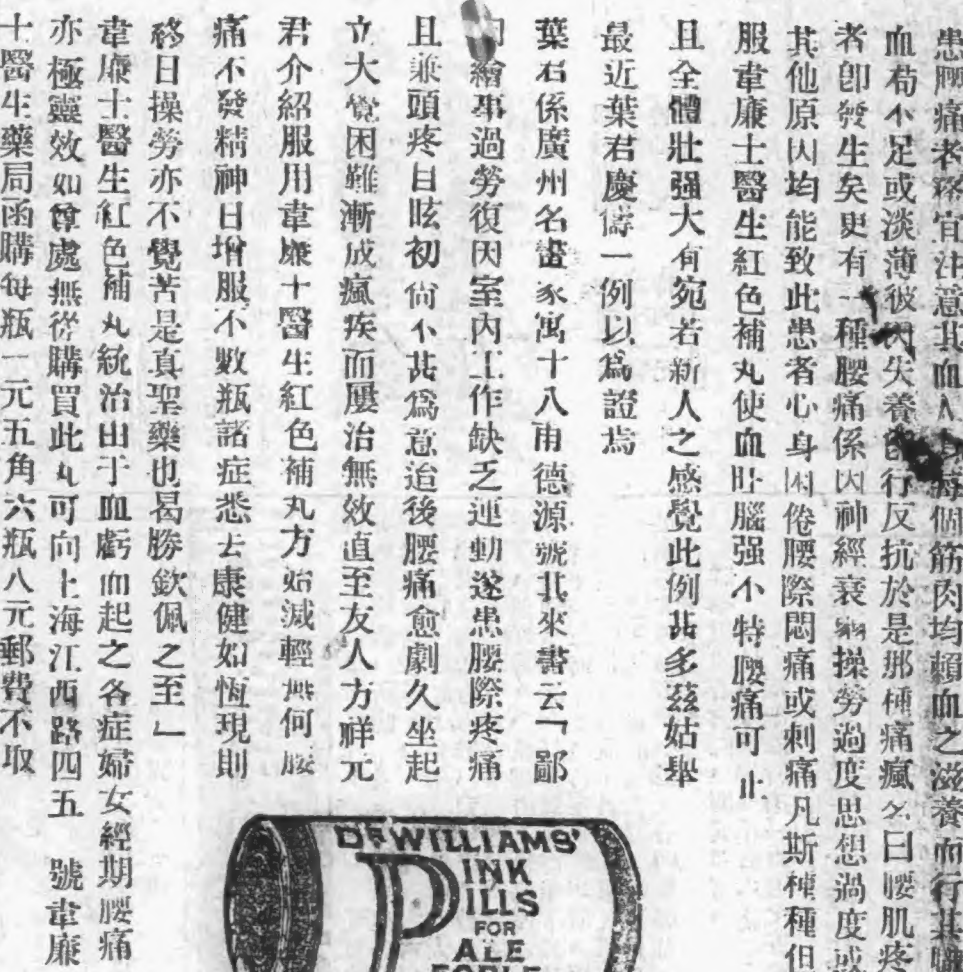 患腰痛者務宜注意其血人身每個筋肉均賴血之滋養而行其職
血苟不足或淡薄彼因失養卽行反抗於是那種痛瘋名曰腰肌疼
者卽發生矣更有一種腰痛係因神經衰弱操勞過度思想過度或
其他原因均能致此患者心身困倦腰際悶痛或刺痛凡斯種種但
服韋廉士醫生紅色補丸使血旺腦强不特腰痛可止
且全體壯强大有宛若新人之感覺此例甚多茲姑舉
最近葉君慶儔一例以爲證焉
葉君係廣州名畫家寓十八甫德源號其來書云「鄙
繪事過勞復因室內工作缺乏運動遂患腰際疼痛
且兼頭疼目眩初尙不甚爲意迨後腰痛愈劇久坐起
立大覺困難漸成瘋疾而屢治無效直至友人方祥元
君介紹服用韋廉士醫生紅色補丸方始減輕無何腰
痛不發精神日增服不數瓶諸症悉去康健如恆現則
終日操勞亦不覺苦是真聖藥也曷勝欽佩之至」
韋廉士醫生紅色補丸統治由于血虧而起之各症婦女經期腰痛
亦極靈效如尊處無從購買此丸可向上海江西路四五 號韋廉
士醫生藥局函購每瓶一元五角六瓶八元郵費不取
DR WILLIAMS'
PINK
PILLS
FOR
PALE
PEOPLE